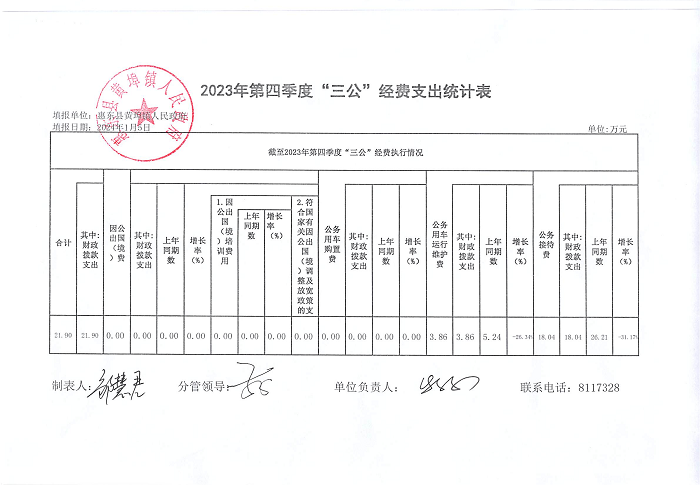 2023年第四季度“三公”经费支出统计表
惠东县黄埠镇人民政府
填报单位：惠东县黄埠镇人民政府
填报日期：2024年1月5日
单位：万元
截至2023年第四季度“三公”经费执行情况
合计
其中：财政拨款支出
因公出国（境）费
其中：财政拨款支出
上年同期数
增长率（%）
1.因公出国（境）培训费用
上年同期数
增长率（%）
2.符合国家有关因公出国（境）调整及放宽政策的支
公务用车购置费
其中：财政拨款支出
上年同期数
增长率（%）
公务用车运行维护费
其中：财政拨款支出
上年同期数
增长率（%）
公务接待费
其中：财政拨款支出
上年同期数
增长率（%）
21.90 21.90 0.00 0.00 0.00 0.00 0.00 0.00 0.00 0.00 0.00 0.00 0.00 0.00 3.86 3.86 5.24 -26.34% 18.04 18.04 26.21 -31.17%
制表人： 分管领导： 单位负责人： 联系电话：8117328